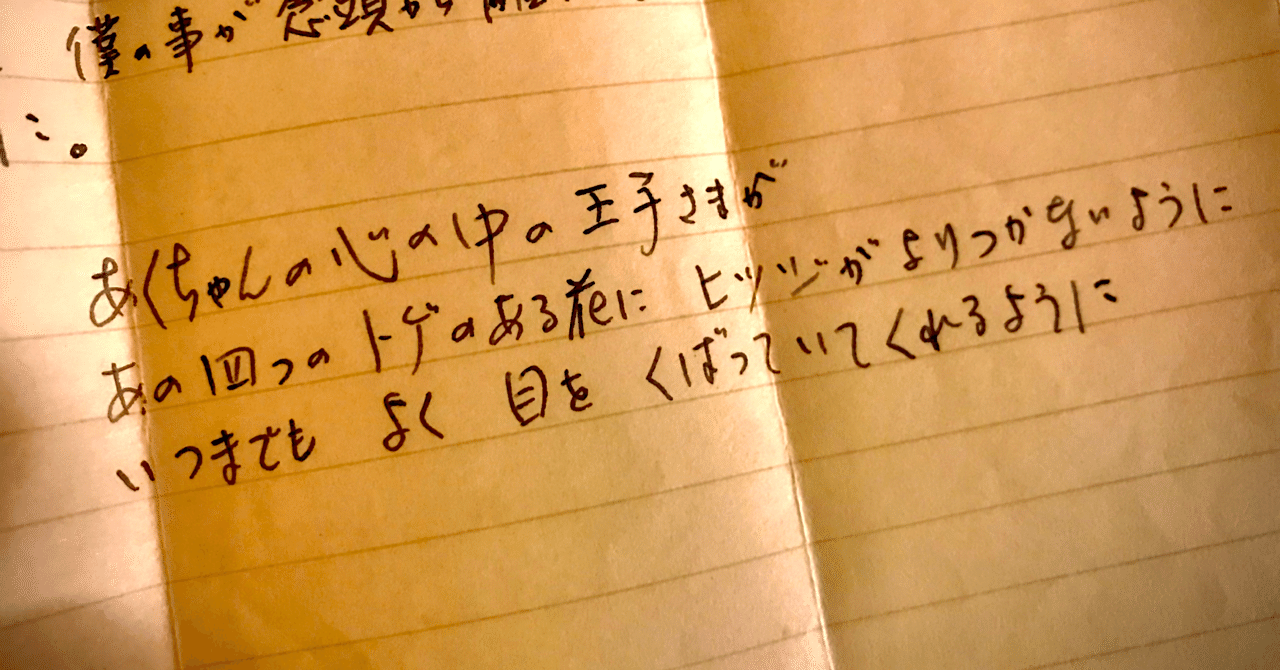 僕の事が念頭から
た。
あくちゃんの心の中の王子さまが
あの四つのトゲのある花にヒツジがよりつかないように
いつまでも よく 目を くばっていてくれるように